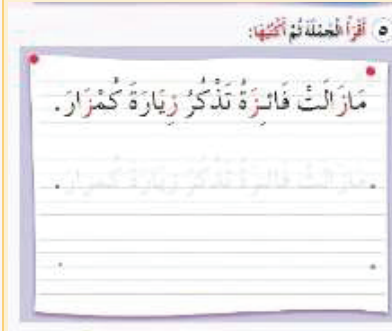 ٥ أَقْرَأُ الْجُمْلَةَ ثُمَّ أَكْتُبُهَا:
مَازَالَتْ فَائِزَةُ تَذْكُرُ زِيَارَةَ كُمْزَارَ.
مَازَالَتْ فَائِزَةُ تَذْكُرُ زِيَارَةَ كُمْزَارَ.